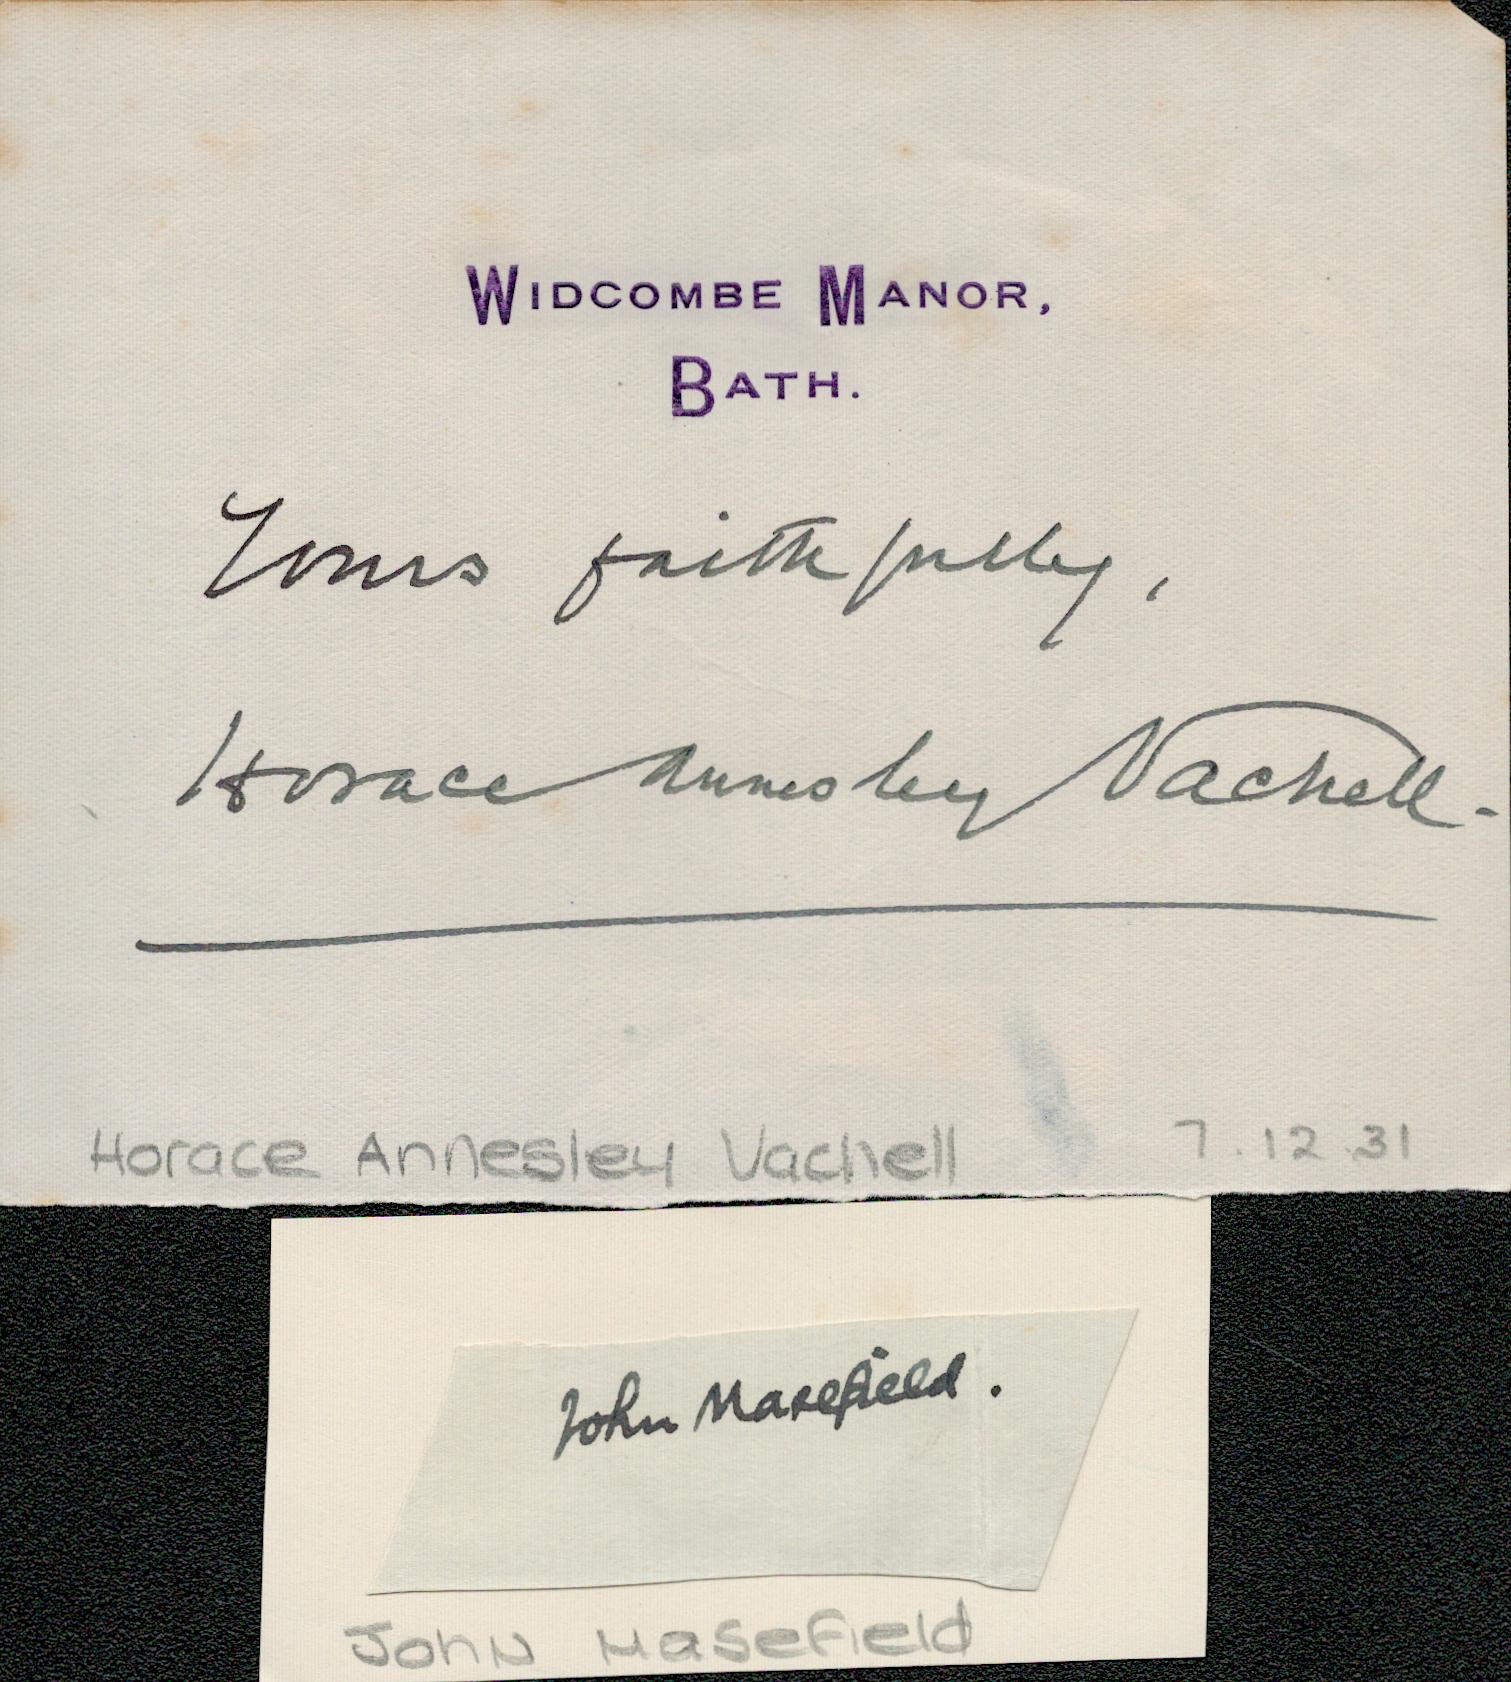 WIDCOMBE MANOR,
BATH.
Yours faithfully,
Horace Annesley Vachell.
Horace Annesley Vachell 7.12.31
John Masefield.
John Masefield